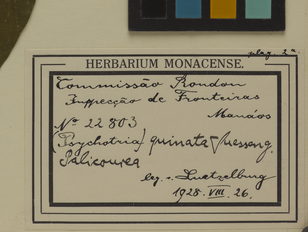 plag. 2ª
HERBARIUM MONACENSE.
Commissão Rondon
Inspecção de Fronteiras
Manáos
Nº 22803
(Psychotria) quinata
Palicourea
leg. v. Luetzelburg
1928. VIII. 26.